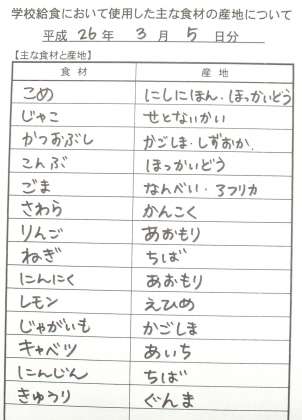 学校給食において使用した主な食材の産地について
平成 26 年 3 月 5 日分
【主な食材と産地】
食 材 産 地
こめ にしにほん・ほっかいどう
じゃこ せとないかい
かつおぶし かごしま・しずおか
こんぶ ほっかいどう
ごま なんべい・アフリカ
さわら かんこく
りんご あおもり
ねぎ ちば
にんにく あおもり
レモン えひめ
じゃがいも かごしま
キャベツ あいち
にんじん ちば
きゅうり ぐんま